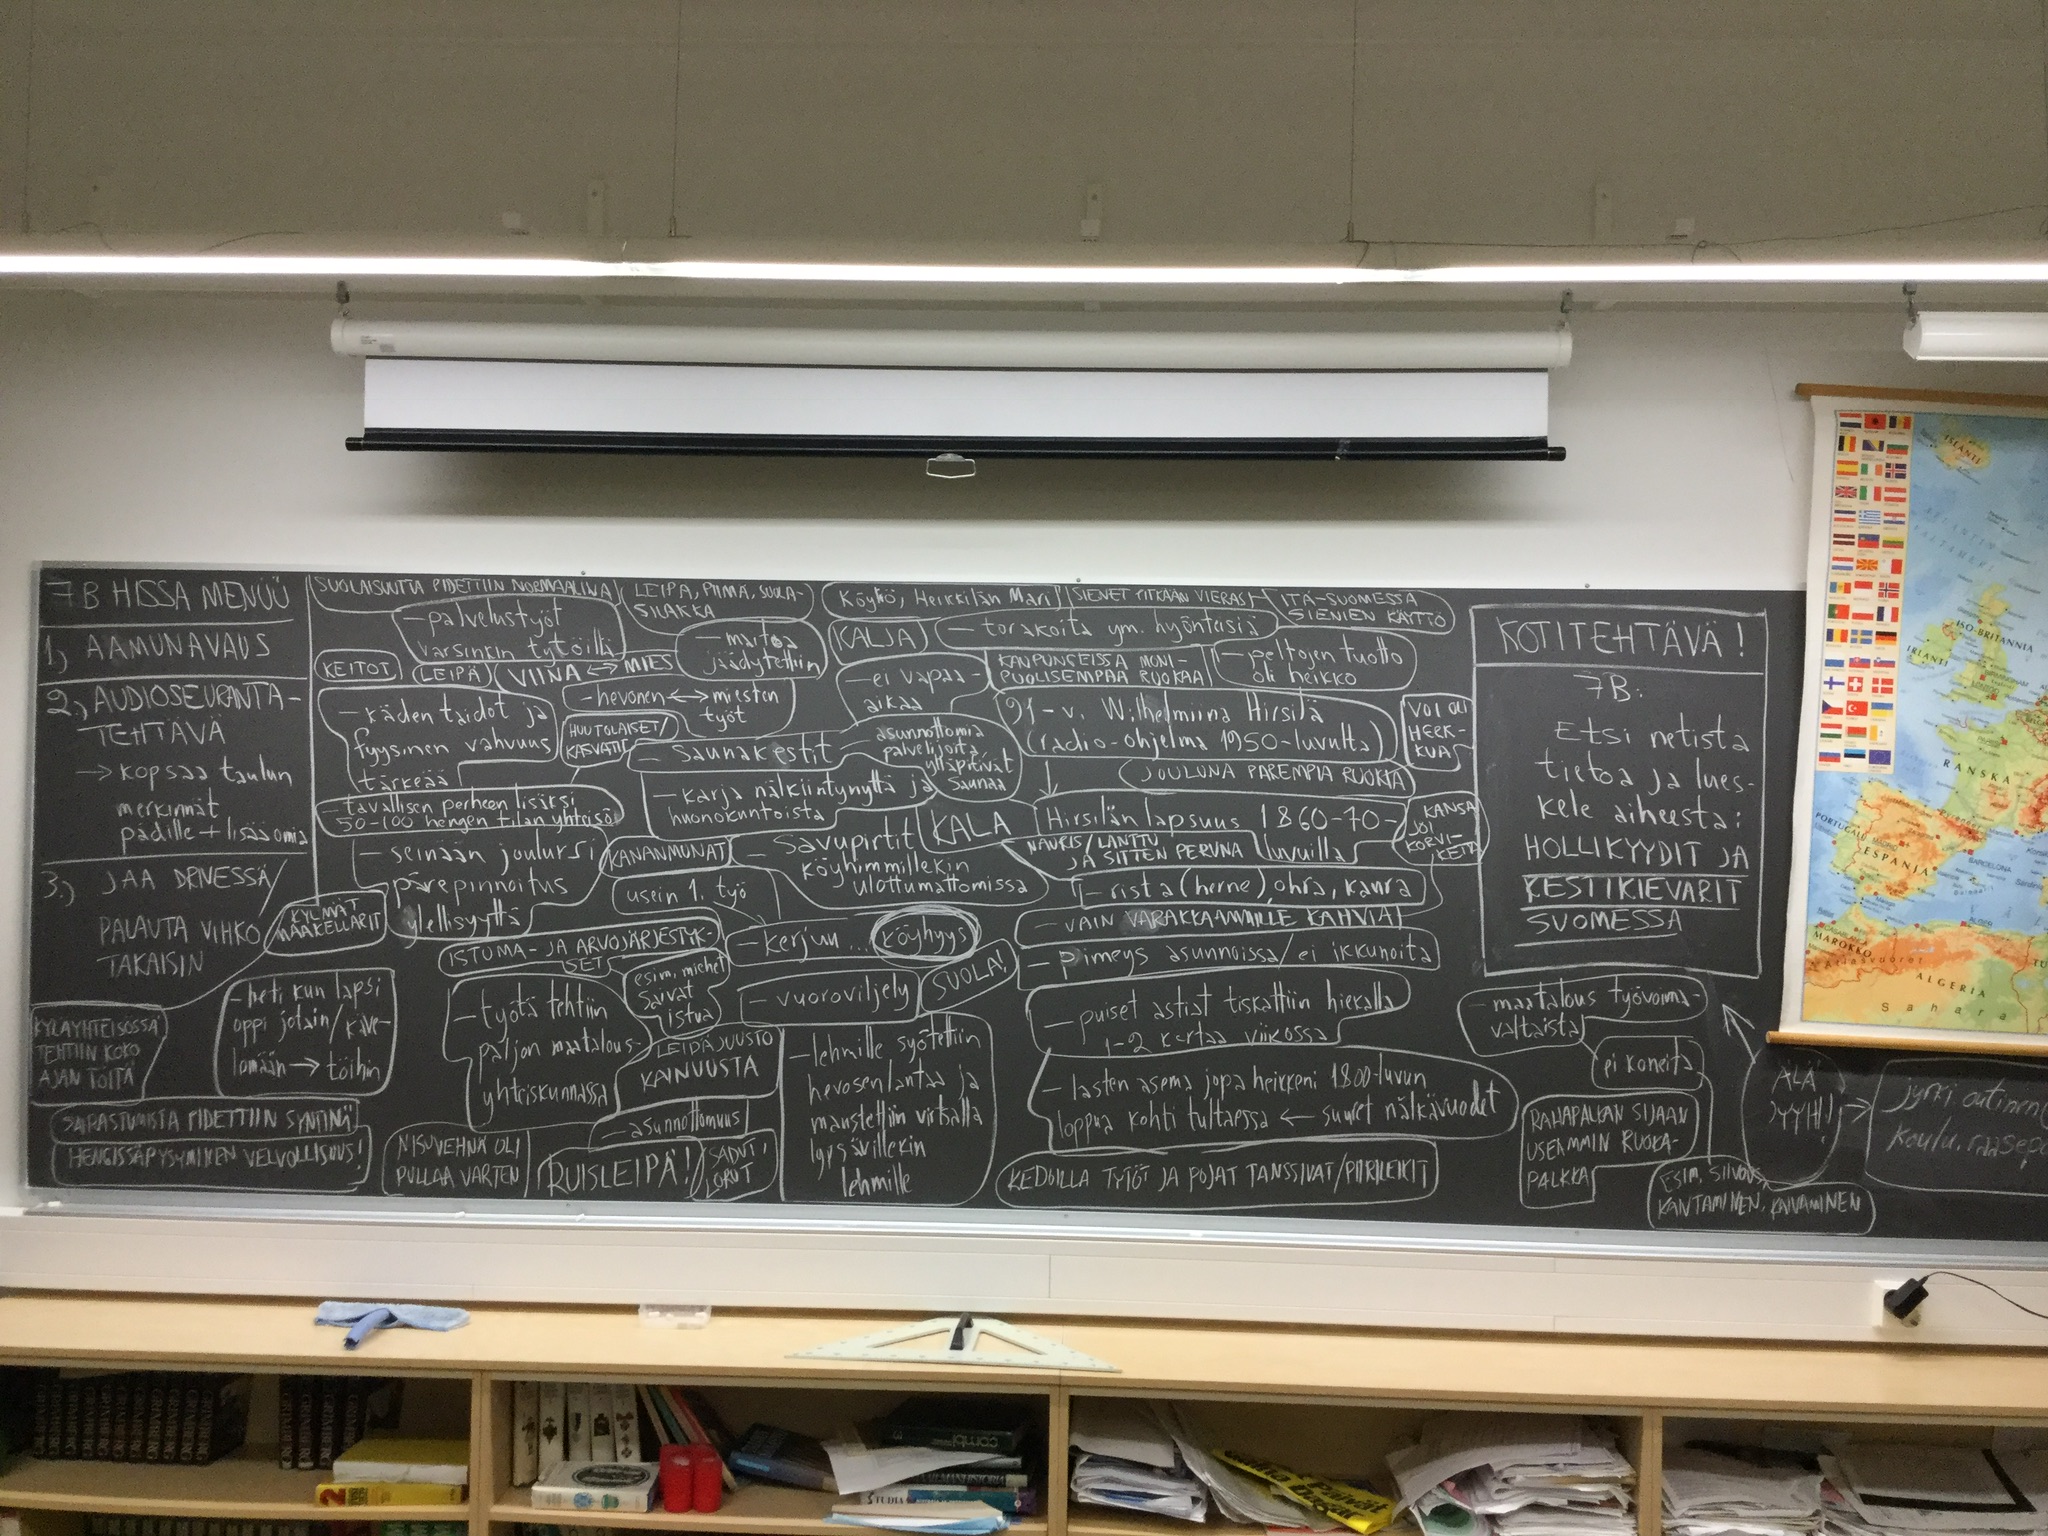 7B HISSA MENÜÜ
1) AAMUNAVAUS
2.) AUDIOSEURANTA-
TEHTÄVÄ
→ kopsaa taulun
merkinnät
pädille + lisää omia
3.) JAA DRIVESSÄ/
PALAUTA VIHKO
TAKAISIN
KYLMÄT
MAAKELLARIT
KYLÄYHTEISÖSSÄ
TEHTIIN KOKO
AJAN TÖITÄ
- heti kun lapsi
oppi jotain/käve-
lemään → töihin
SAIRASTUMISTA PIDETTIIN SYNTINÄ
HENGISSÄPYSYMINEN VELVOLLISUUS!
SUOLAISUUTTA PIDETTIIN NORMAALINA
- palvelustyöt
varsinkin tytöillä
LEIPÄ, PIIMÄ, SUOLA-
SILAKKA
- maitoa
jäädytettiin
KEITOT
LEIPÄ
VIINA ↔ MIES
- hevonen ↔ miesten
työt
- käden taidot ja
fyysinen vahvuus
tärkeää
HUUTOLAISET/
KASVATIT
- tavallisen perheen lisäksi
50-100 hengen tilan yhteisö
- saunakestit
asunnottomia
palvelijoita
ylläpitivät
saunaa
- karja nälkiintynyttä ja
huonokuntoista
- seinään jouluksi
pärepinnoitus
ylellisyyttä
KANANMUNAT
- Savupirtit
köyhimmillekin
ulottumattomissa
usein 1. työ
- kerjuu ...
köyhyys
ISTUMA- JA ARVOJÄRJESTYK-
SET
esim. miehet
saivat
istua
- vuoroviljely
SUOLA!
- työtä tehtiin
paljon maatalous-
yhteiskunnassa
LEIPÄJUUSTO
KAINUUSTA
- asunnottomuus
NISUVEHNÄ OLI
PULLAA VARTEN
RUISLEIPÄ!
SADUT/
LORUT
- lehmille syötettiin
hevosenlantaa ja
maustettiin virtsalla
lypsävillekin
lehmille
Köyhö, Heikkilän Mari
SIENET PITKÄÄN VIERAS
ITÄ-SUOMESSA
SIENIEN KÄYTTÖ
KALJA
- torakoita ym. hyönteisiä
- ei vapaa-
aikaa
KAUPUNGEISSA MONI-
PUOLISEMPAA RUOKAA
- peltojen tuotto
oli heikko
91-v. Wilhelmiina Hirsilä
(radio-ohjelma 1950-luvulta)
VOI OLI
HERK-
KUA
JOULUNA PAREMPIA RUOKIA
KALA
Hirsilän lapsuus 1860-70-
luvuilla
KANSA
JOI
KORVI-
KEITA
NAURIS/LANTTU
JA SITTEN PERUNA
- rista (herne) ohra, kaura
- VAIN VARAKKAAMMILLE KAHVIA
- Pimeys asunnoissa/ei ikkunoita
- puiset astiat tiskattiin hiekalla
1-2 kertaa viikossa
- lasten asema jopa heikkeni 1800-luvun
loppua kohti tultaessa ← suuret nälkävuodet
KEDOILLA TYTÖT JA POJAT TANSSIVAT/PIIRILEIKIT
KOTITEHTÄVÄ!
7B:
Etsi netistä
tietoa ja lues-
kele aiheesta:
HOLLIKYYDIT JA
KESTIKIEVARIT
SUOMESSA
- maatalous työvoima-
valtaista
ei koneita
RAHAPALKAN SIJAAN
USEAMMIN RUOKA-
PALKKA
ESIM. SIIVOUS,
KANTAMINEN, KAIVAMINEN
ÄLÄ
PYYHI!
jyrki.outinen
koulu.raasepo
ISLANTI
ISO-BRITANNIA
IRLANTI
RANSKA
PORTUGALI
ESPANJA
MAROKKO
ALGERIA
Sahara
BARCELONA
MADRID
combi
STUDIA